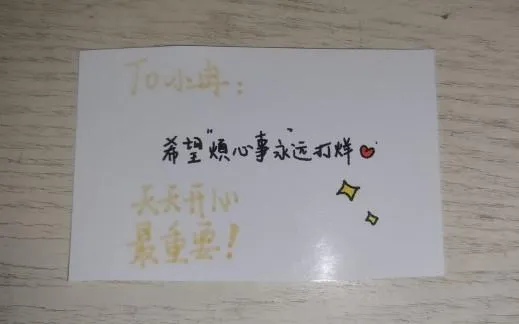 To小冉：
希望“烦心事”永远打烊
天天开心
最重要！